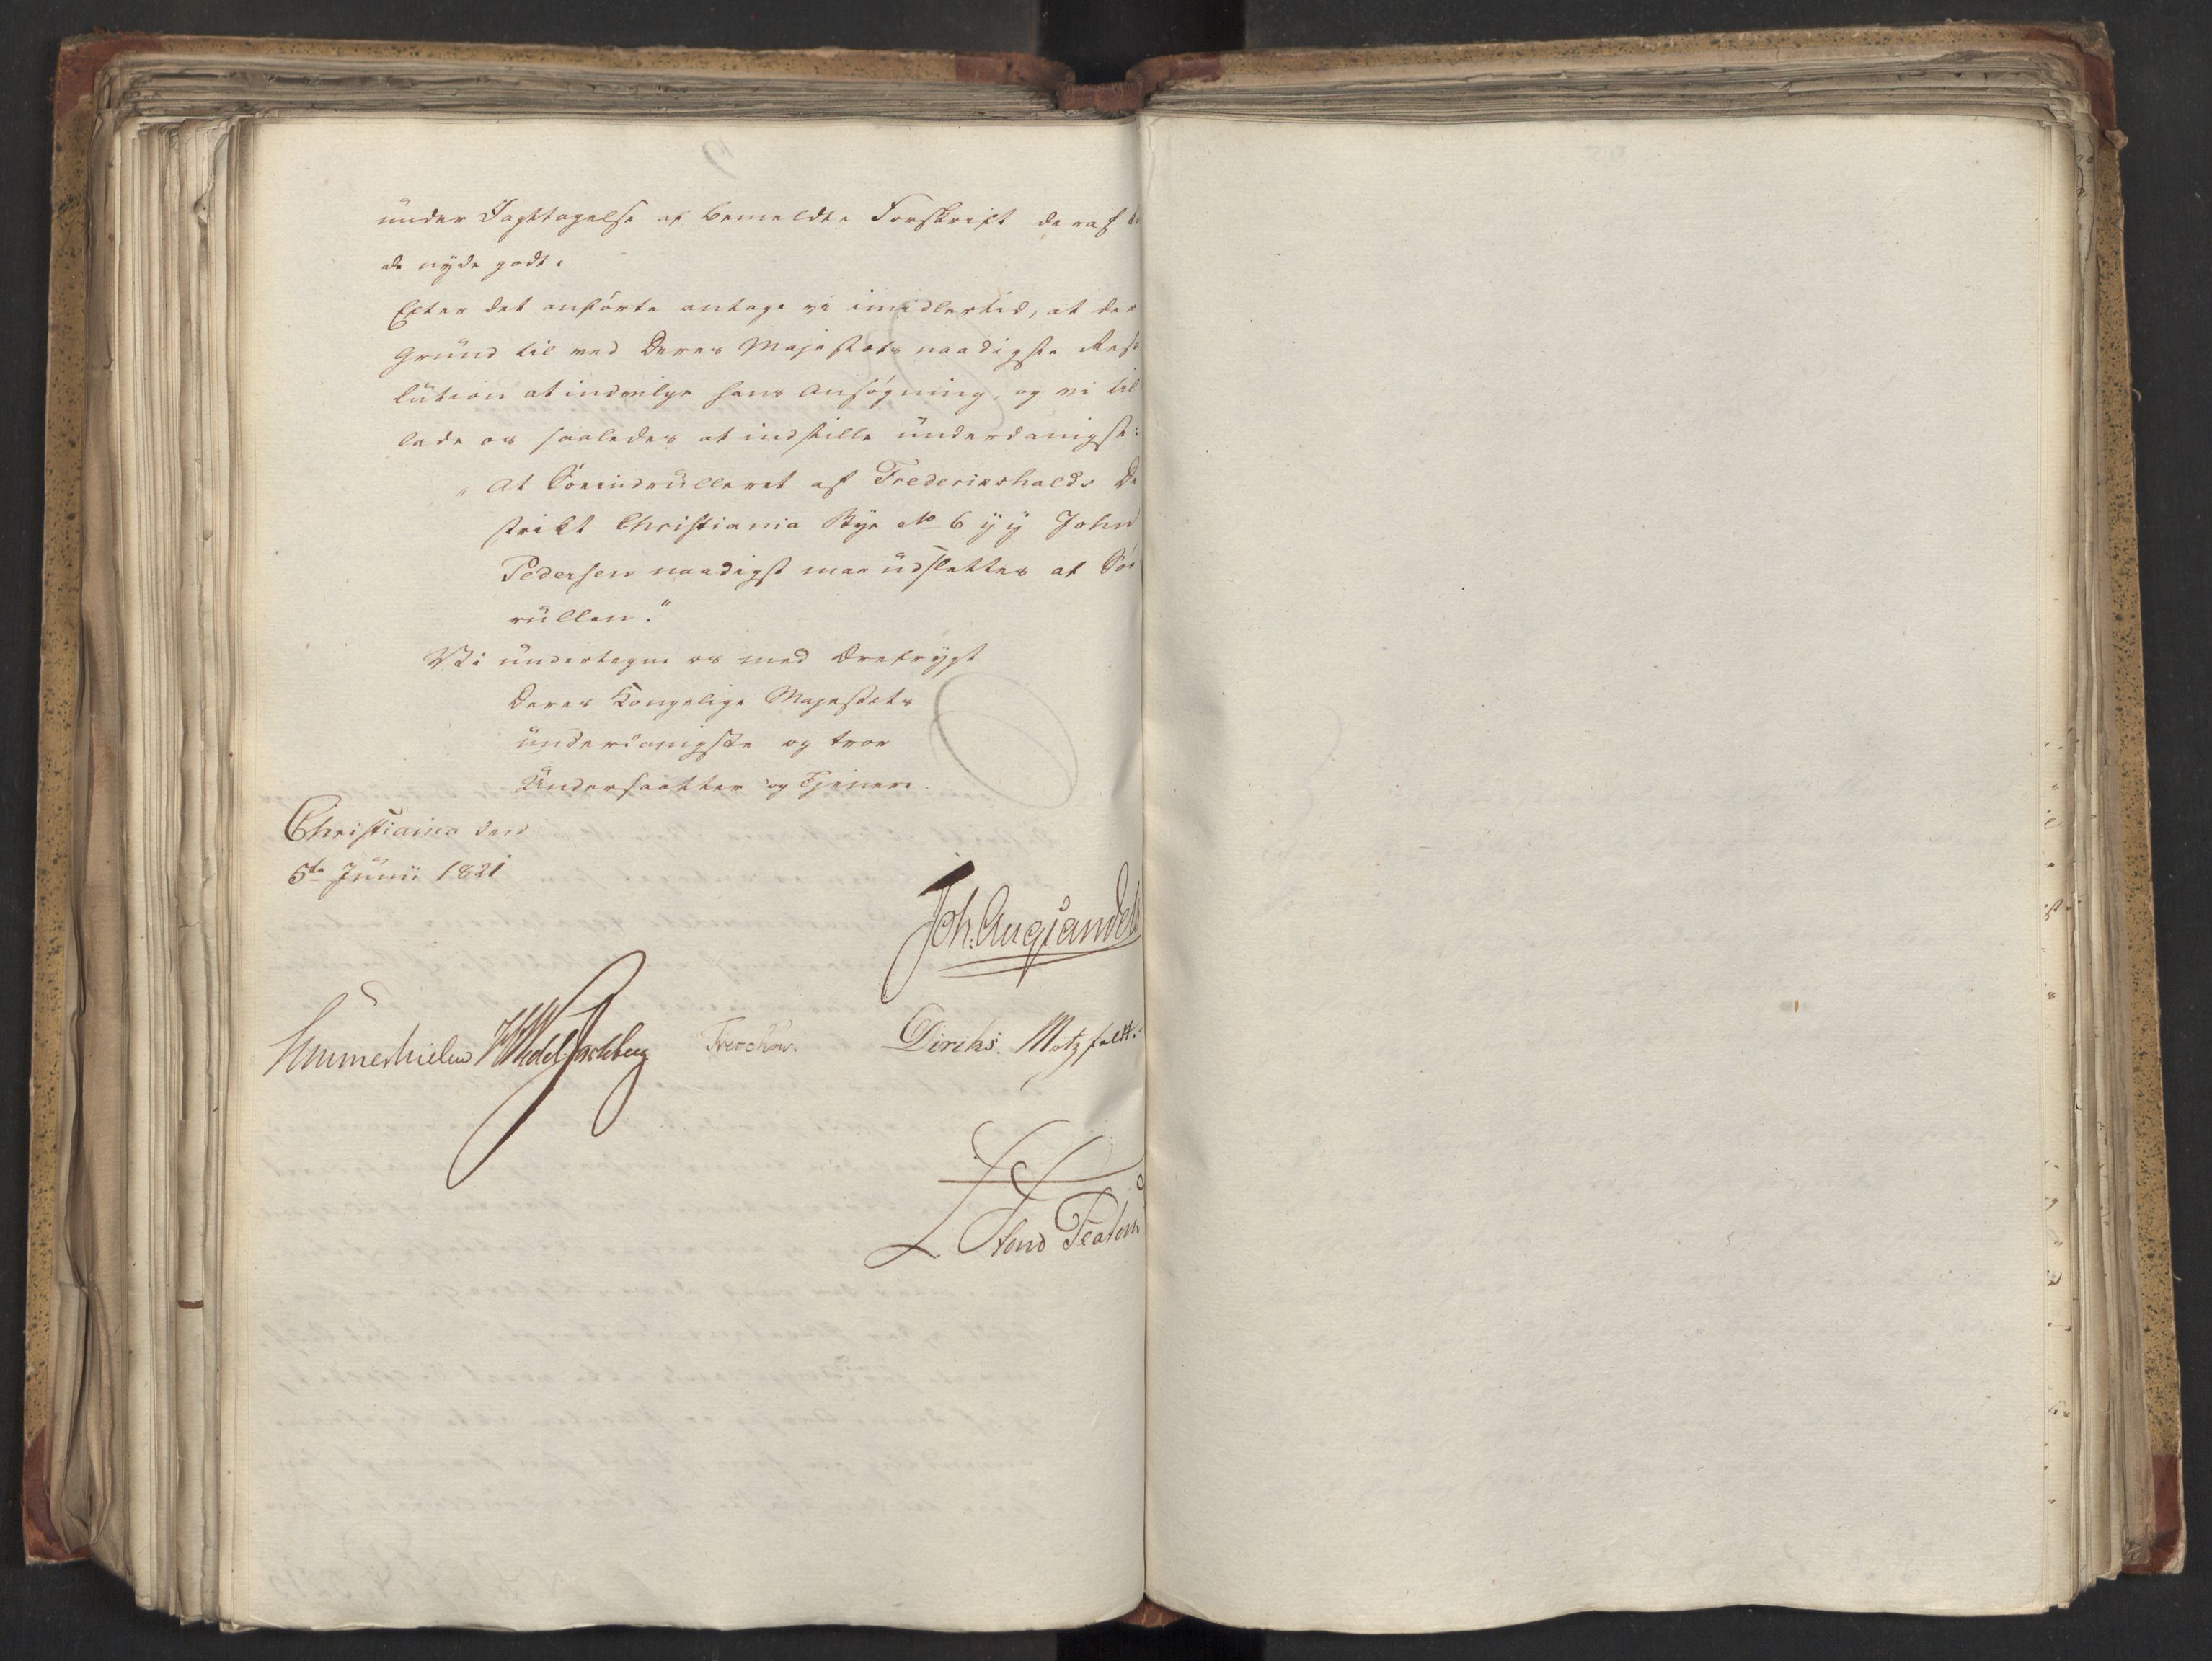 under Iagttagelse af bemeldte Forskrift deraf
de nyde godt.
Efter det anførte antage vi imidlertid, at der
Grund til ved Deres Majestæts naadigste Reso
lution at indvilge hans Ansøgning, og vi til
lade os saaledes at indstille underdanigst:
"At Søeindrulleret af Frederikshalds Di
strikt Christiania Bye No 6 yy John
Pedersen naadigst maa udslettes af Søe
rullen."
Vi undertegne os med Ærefrygt
Deres Kongelige Majestæts
underdanigste og troe
Undersaatter og Tjenere.
Christiania den
5te Junii 1821
Joh. Aug Sandels
Sommerhielm HWedel Jarlsberg Treschow. Diriks. Motzfeldt.